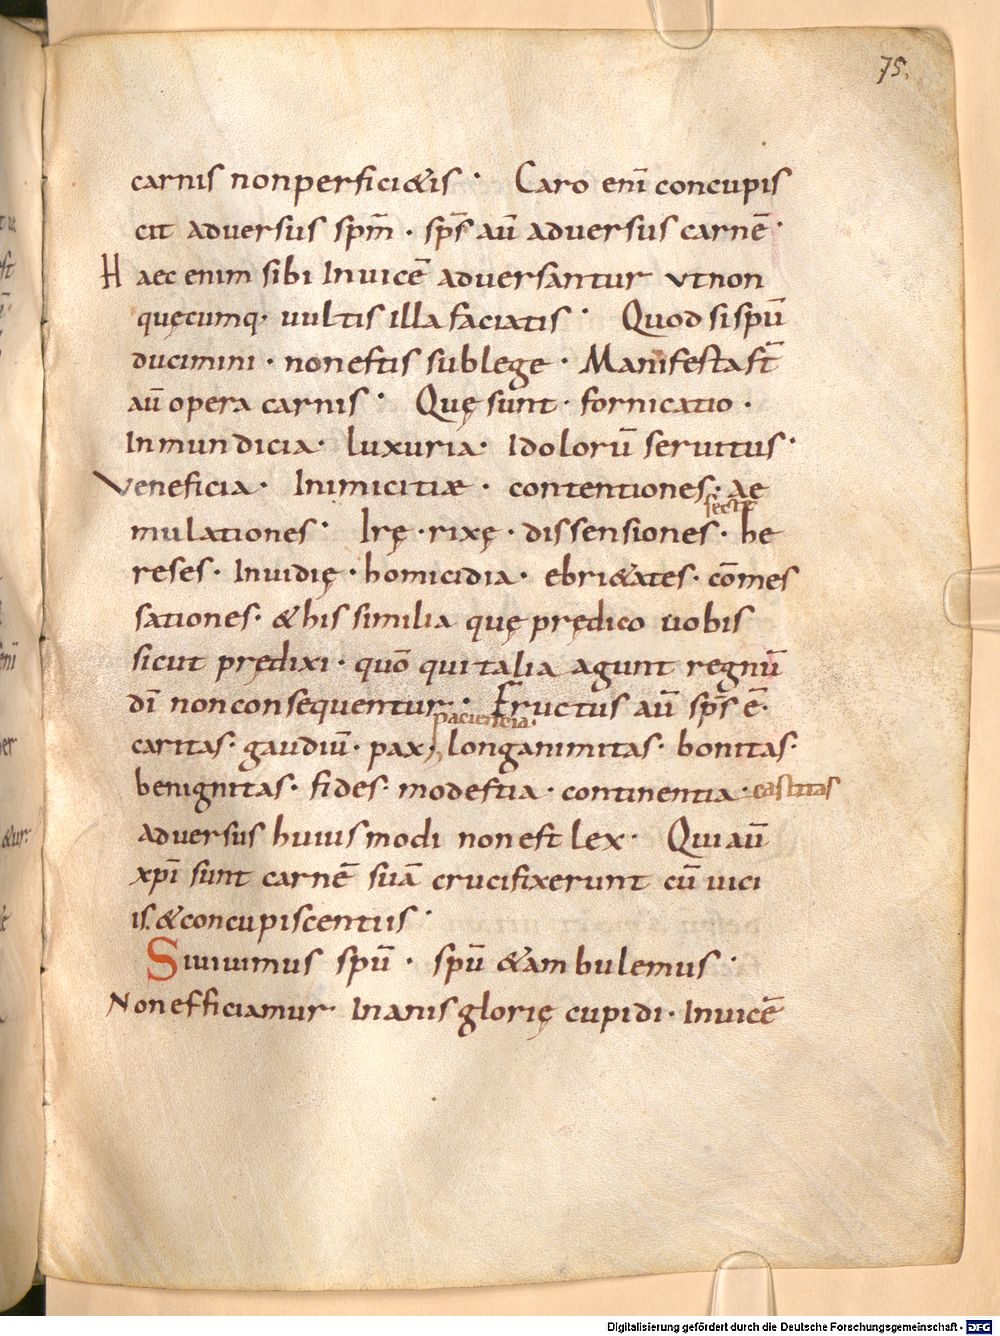 75.
carnis nonperfici&is · Caro enī concupis
cit adversus spm̄ · sps̄ aū adversus carnē ·
Haec enim sibi Invicē adversantur vtnon
quęcumq· uultis illa faciatis · Quod sispū
ducimini · nonestis sublege · Manifestast̄
aū opera carnis · Quę sunt · fornicatio ·
Inmundicia · luxuria · Idolorū seruitus ·
Veneficia · Inimicitiæ · contentiones · ae
secte
mulationes · Irę · rixę · dissensiones · he
reses · Inuidię · homicidia · ebri&ates · cōmes
sationes · &his similia quę prędico uobis
sicut prędixi · quō quitalia agunt regnū
dī nonconsequentur · Fructus aū sps̄ ē ·
paciencia ·
caritas · gaudiū · pax · longanimitas · bonitas ·
benignitas · fides · modestia · continentia · castitas
adversus huiusmodi nonest lex · Qui aū
xpī sunt carnē suā crucifixerunt cū uici
is · &concupiscentiis ·
Siuiuimus spū · spū &ambulemus ·
Nonefficiamur Inanisglorię cupidi · Invicē
Digitalisierung gefördert durch die Deutsche Forschungsgemeinschaft - DFG